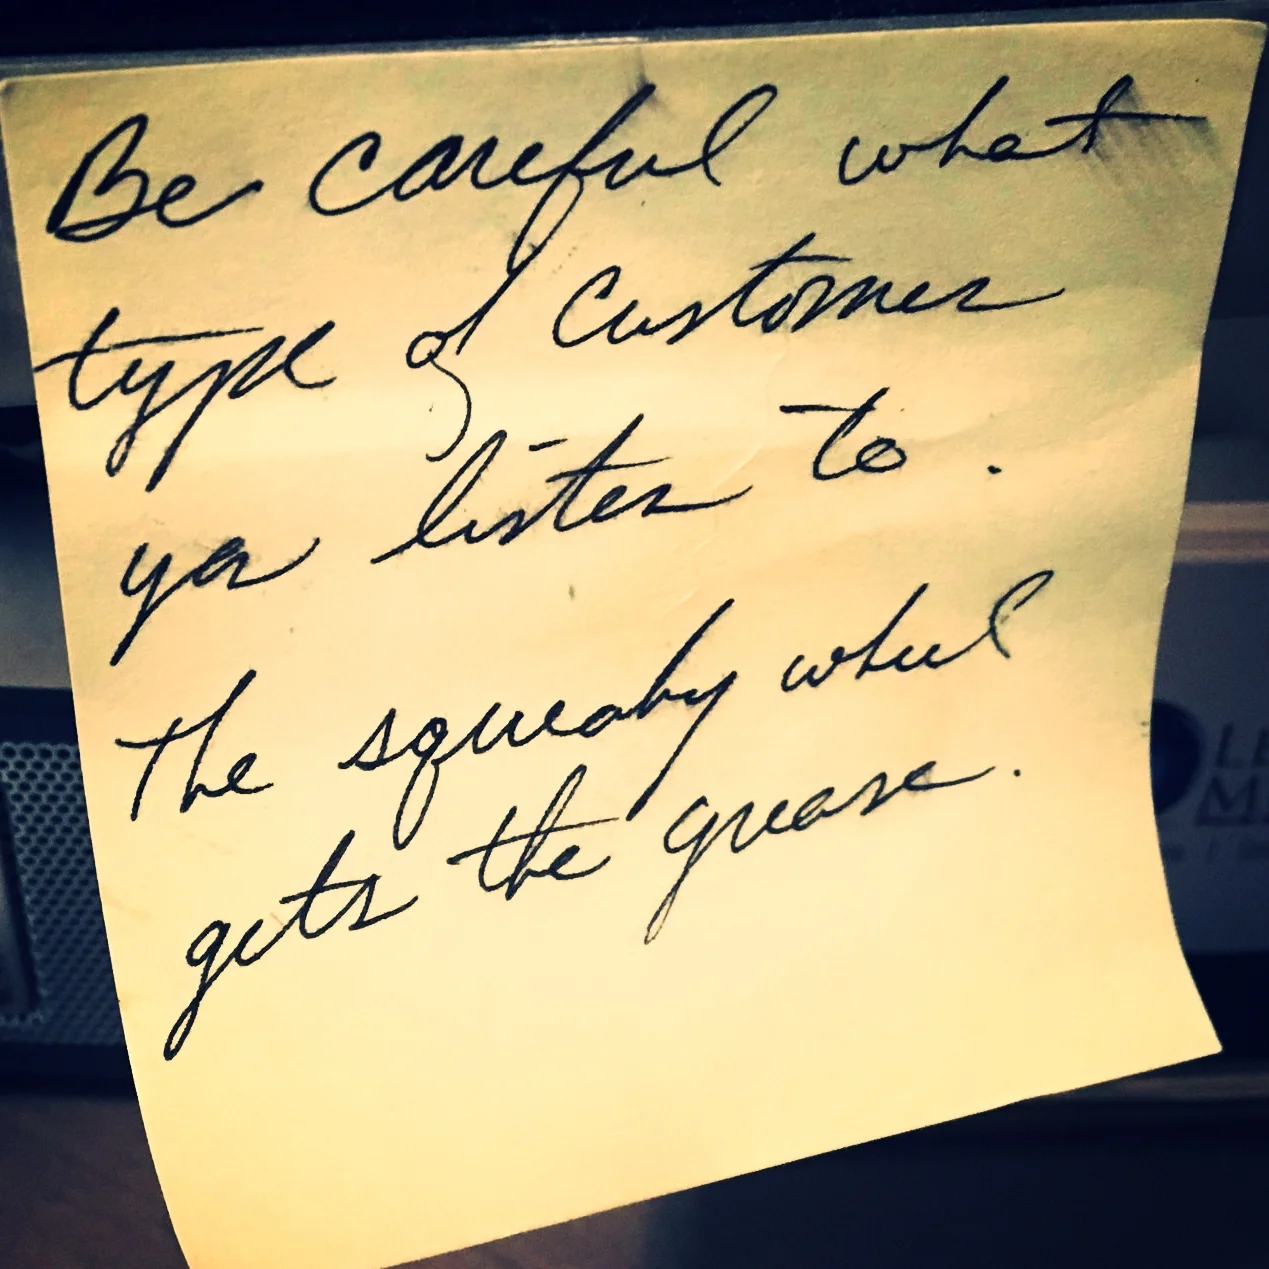 Be careful what
type of customer
you listen to.
The squeaky wheel
gets the grease.